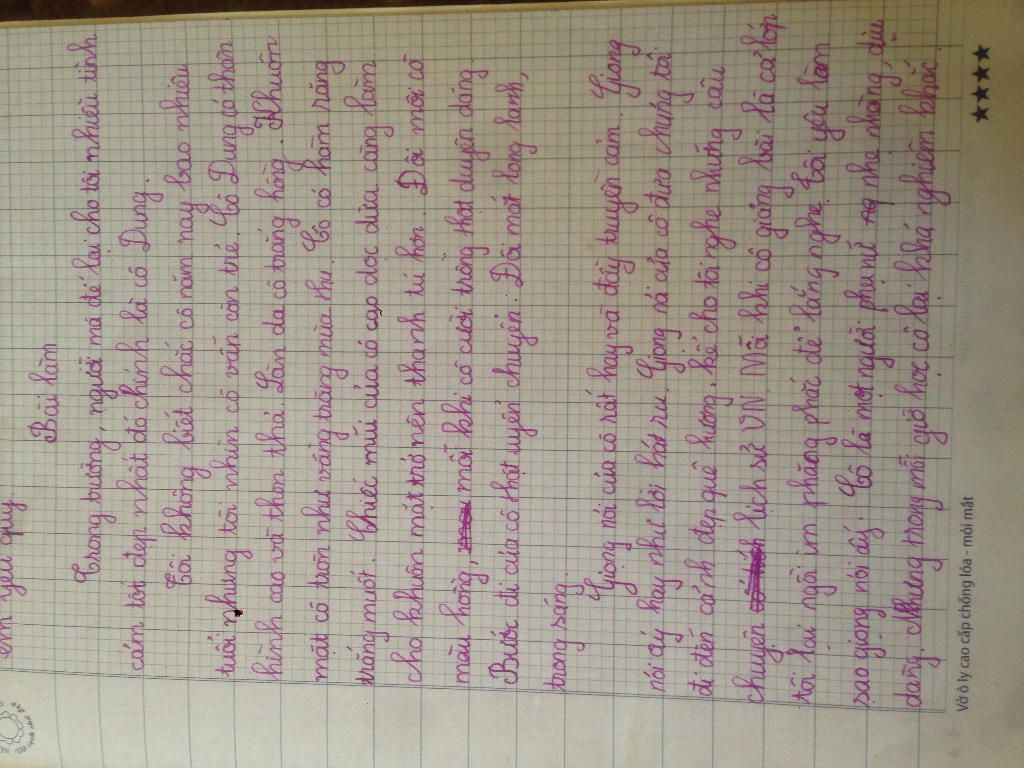 em yêu quý
Bài làm
Trong trường, người mà để lại cho tôi nhiều tình
cảm tốt đẹp nhất đó chính là cô Dung.
Tôi không biết chắc cô năm nay bao nhiêu
tuổi nhưng tôi nhìn cô vẫn còn trẻ. Cô Dung có thân
hình cao và thon thả. Làn da cô trắng hồng. Khuôn
mặt cô tròn như vầng trăng mùa thu. Cô có hàm răng
trắng muốt. Chiếc mũi của cô cao dọc dừa càng làm
cho khuôn mặt trở nên thanh tú hơn. Đôi môi cô
màu hồng, mỗi khi cô cười trông thật duyên dáng.
Bước đi của cô thật uyển chuyển. Đôi mắt long lanh,
trong sáng.
Giọng nói của cô rất hay và đầy truyền cảm. Giọng
nói ấy hay như lời hát ru. Giọng nói của cô đưa chúng tôi
đi đến cảnh đẹp quê hương, kể cho tôi nghe những câu
chuyện lịch sử VN. Mỗi khi cô giảng bài là cả lớp
tôi lại ngồi im phăng phắc để lắng nghe. Tôi yêu làm
sao giọng nói ấy. Cô là một người phụ nữ nhẹ nhàng, dịu
dàng. Nhưng trong mỗi giờ học cô lại khá nghiêm khắc.
Vở ô ly cao cấp chống lóa - mỏi mắt